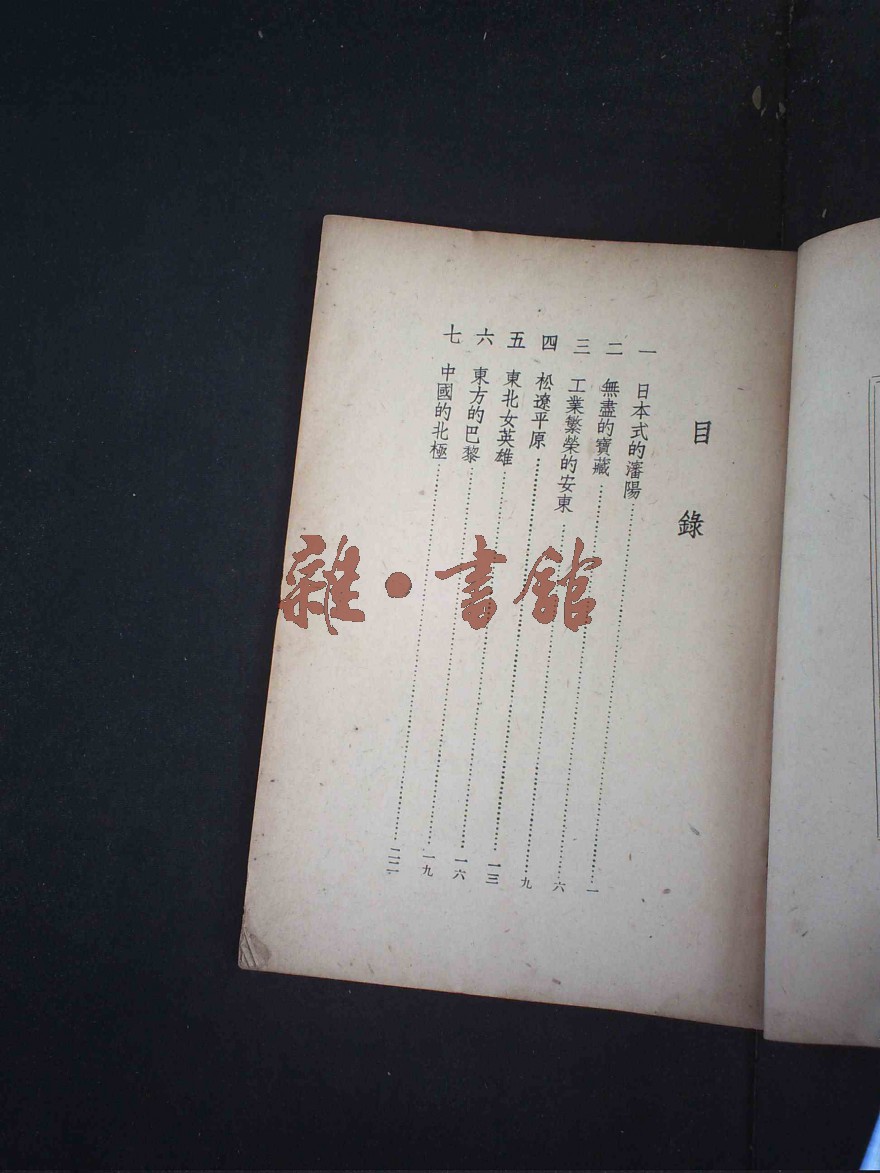 目錄
一 日本式的瀋陽……一
二 無盡的寶藏……六
三 工業繁榮的安東……九
四 松遼平原……一三
五 東北女英雄……一六
六 東方的巴黎……一九
七 中國的北極……二二
雜·書館